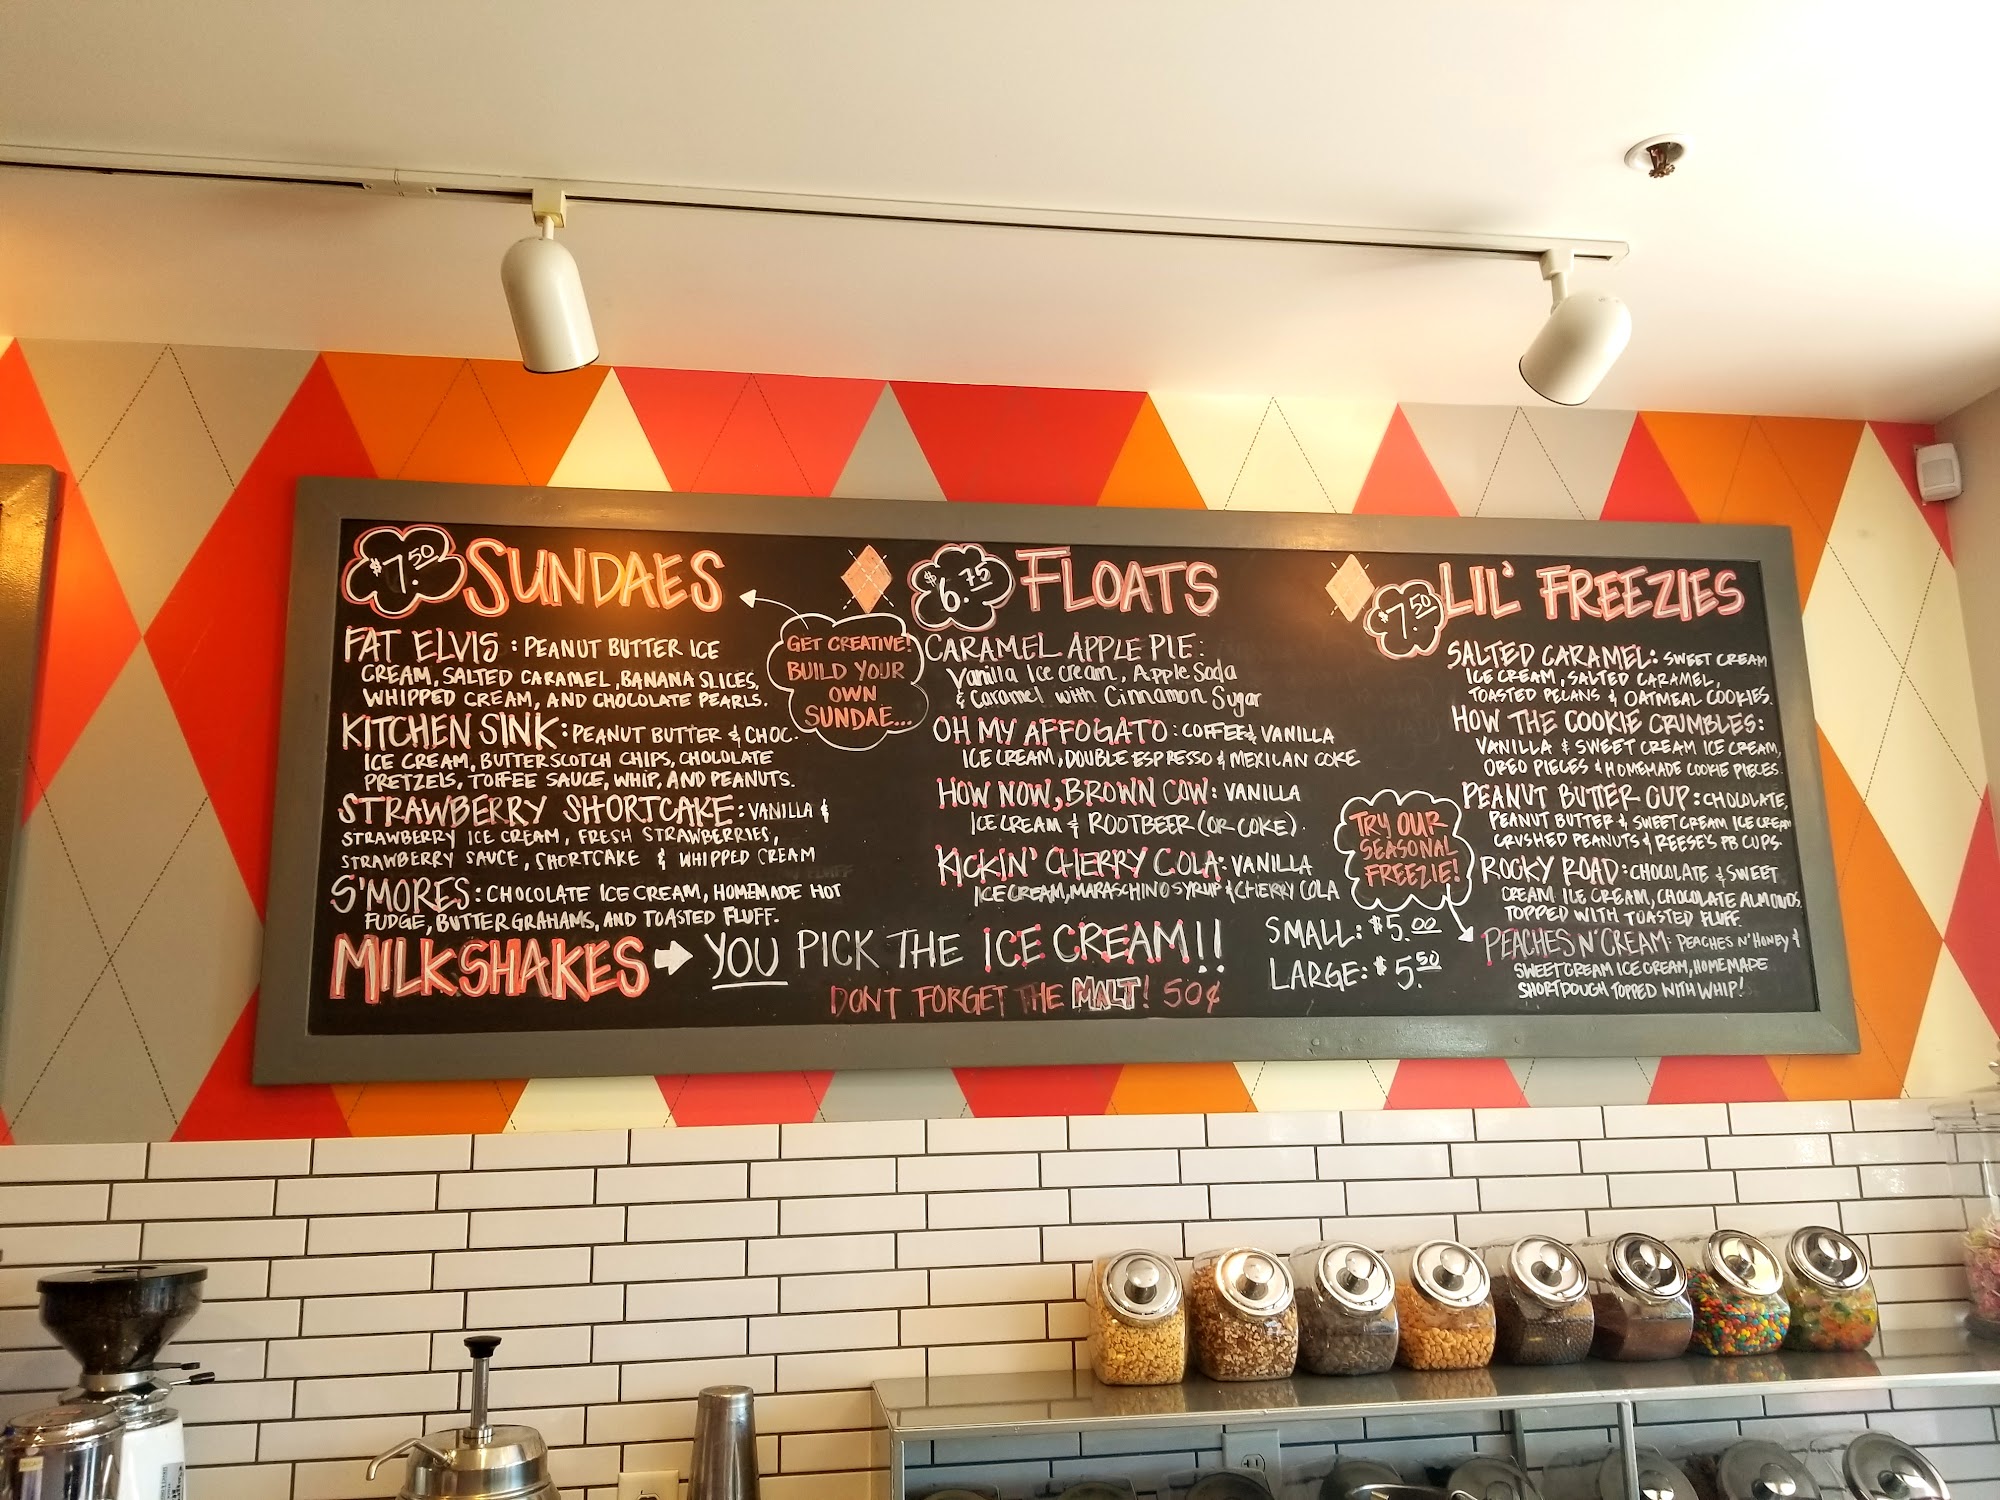 $7.50 SUNDAES
FAT ELVIS: PEANUT BUTTER ICE
CREAM, SALTED CARAMEL, BANANA SLICES,
WHIPPED CREAM, AND CHOCOLATE PEARLS.
KITCHEN SINK: PEANUT BUTTER & CHOC.
ICE CREAM, BUTTERSCOTCH CHIPS, CHOLOLATE
PRETZELS, TOFFEE SAUCE, WHIP, AND PEANUTS.
STRAWBERRY SHORTCAKE: VANILLA &
STRAWBERRY ICE CREAM, FRESH STRAWBERRIES,
STRAWBERRY SAUCE, SHORTCAKE & WHIPPED CREAM
S'MORES: CHOCOLATE ICE CREAM, HOMEMADE HOT
FUDGE, BUTTER GRAHAMS, AND TOASTED FLUFF.
GET CREATIVE!
BUILD YOUR
OWN
SUNDAE...
$6.75 FLOATS
CARAMEL APPLE PIE:
Vanilla Ice cream, Apple Soda
& Caramel with Cinnamon Sugar
OH MY AFFOGATO: COFFEE & VANILLA
ICE CREAM, DOUBLE ESPRESSO & MEXICAN COKE
HOW NOW, BROWN COW: VANILLA
ICE CREAM & ROOTBEER (OR COKE).
KICKIN' CHERRY COLA: VANILLA
ICE CREAM, MARASCHINO SYRUP & CHERRY COLA
$7.50 LIL' FREEZIES
SALTED CARAMEL: SWEET CREAM
ICE CREAM, SALTED CARAMEL,
TOASTED PECANS & OATMEAL COOKIES.
HOW THE COOKIE CRUMBLES:
VANILLA & SWEET CREAM ICE CREAM,
OREO PIECES & HOMEMADE COOKIE PIECES.
PEANUT BUTTER CUP: CHOLOLATE,
PEANUT BUTTER & SWEET CREAM ICE CREAM
CRUSHED PEANUTS & REESE'S PB CUPS.
ROCKY ROAD: CHOCOLATE & SWEET
CREAM ICE CREAM, CHOCOLATE ALMONDS,
TOPPED WITH TOASTED FLUFF.
PEACHES N' CREAM: PEACHES N' HONEY &
SWEET CREAM ICE CREAM, HOMEMADE
SHORTDOUGH TOPPED WITH WHIP!
TRY OUR
SEASONAL
FREEZIE!
MILKSHAKES YOU PICK THE ICE CREAM!!
DONT FORGET THE MALT! 50¢
SMALL: $5.00
LARGE: $5.50